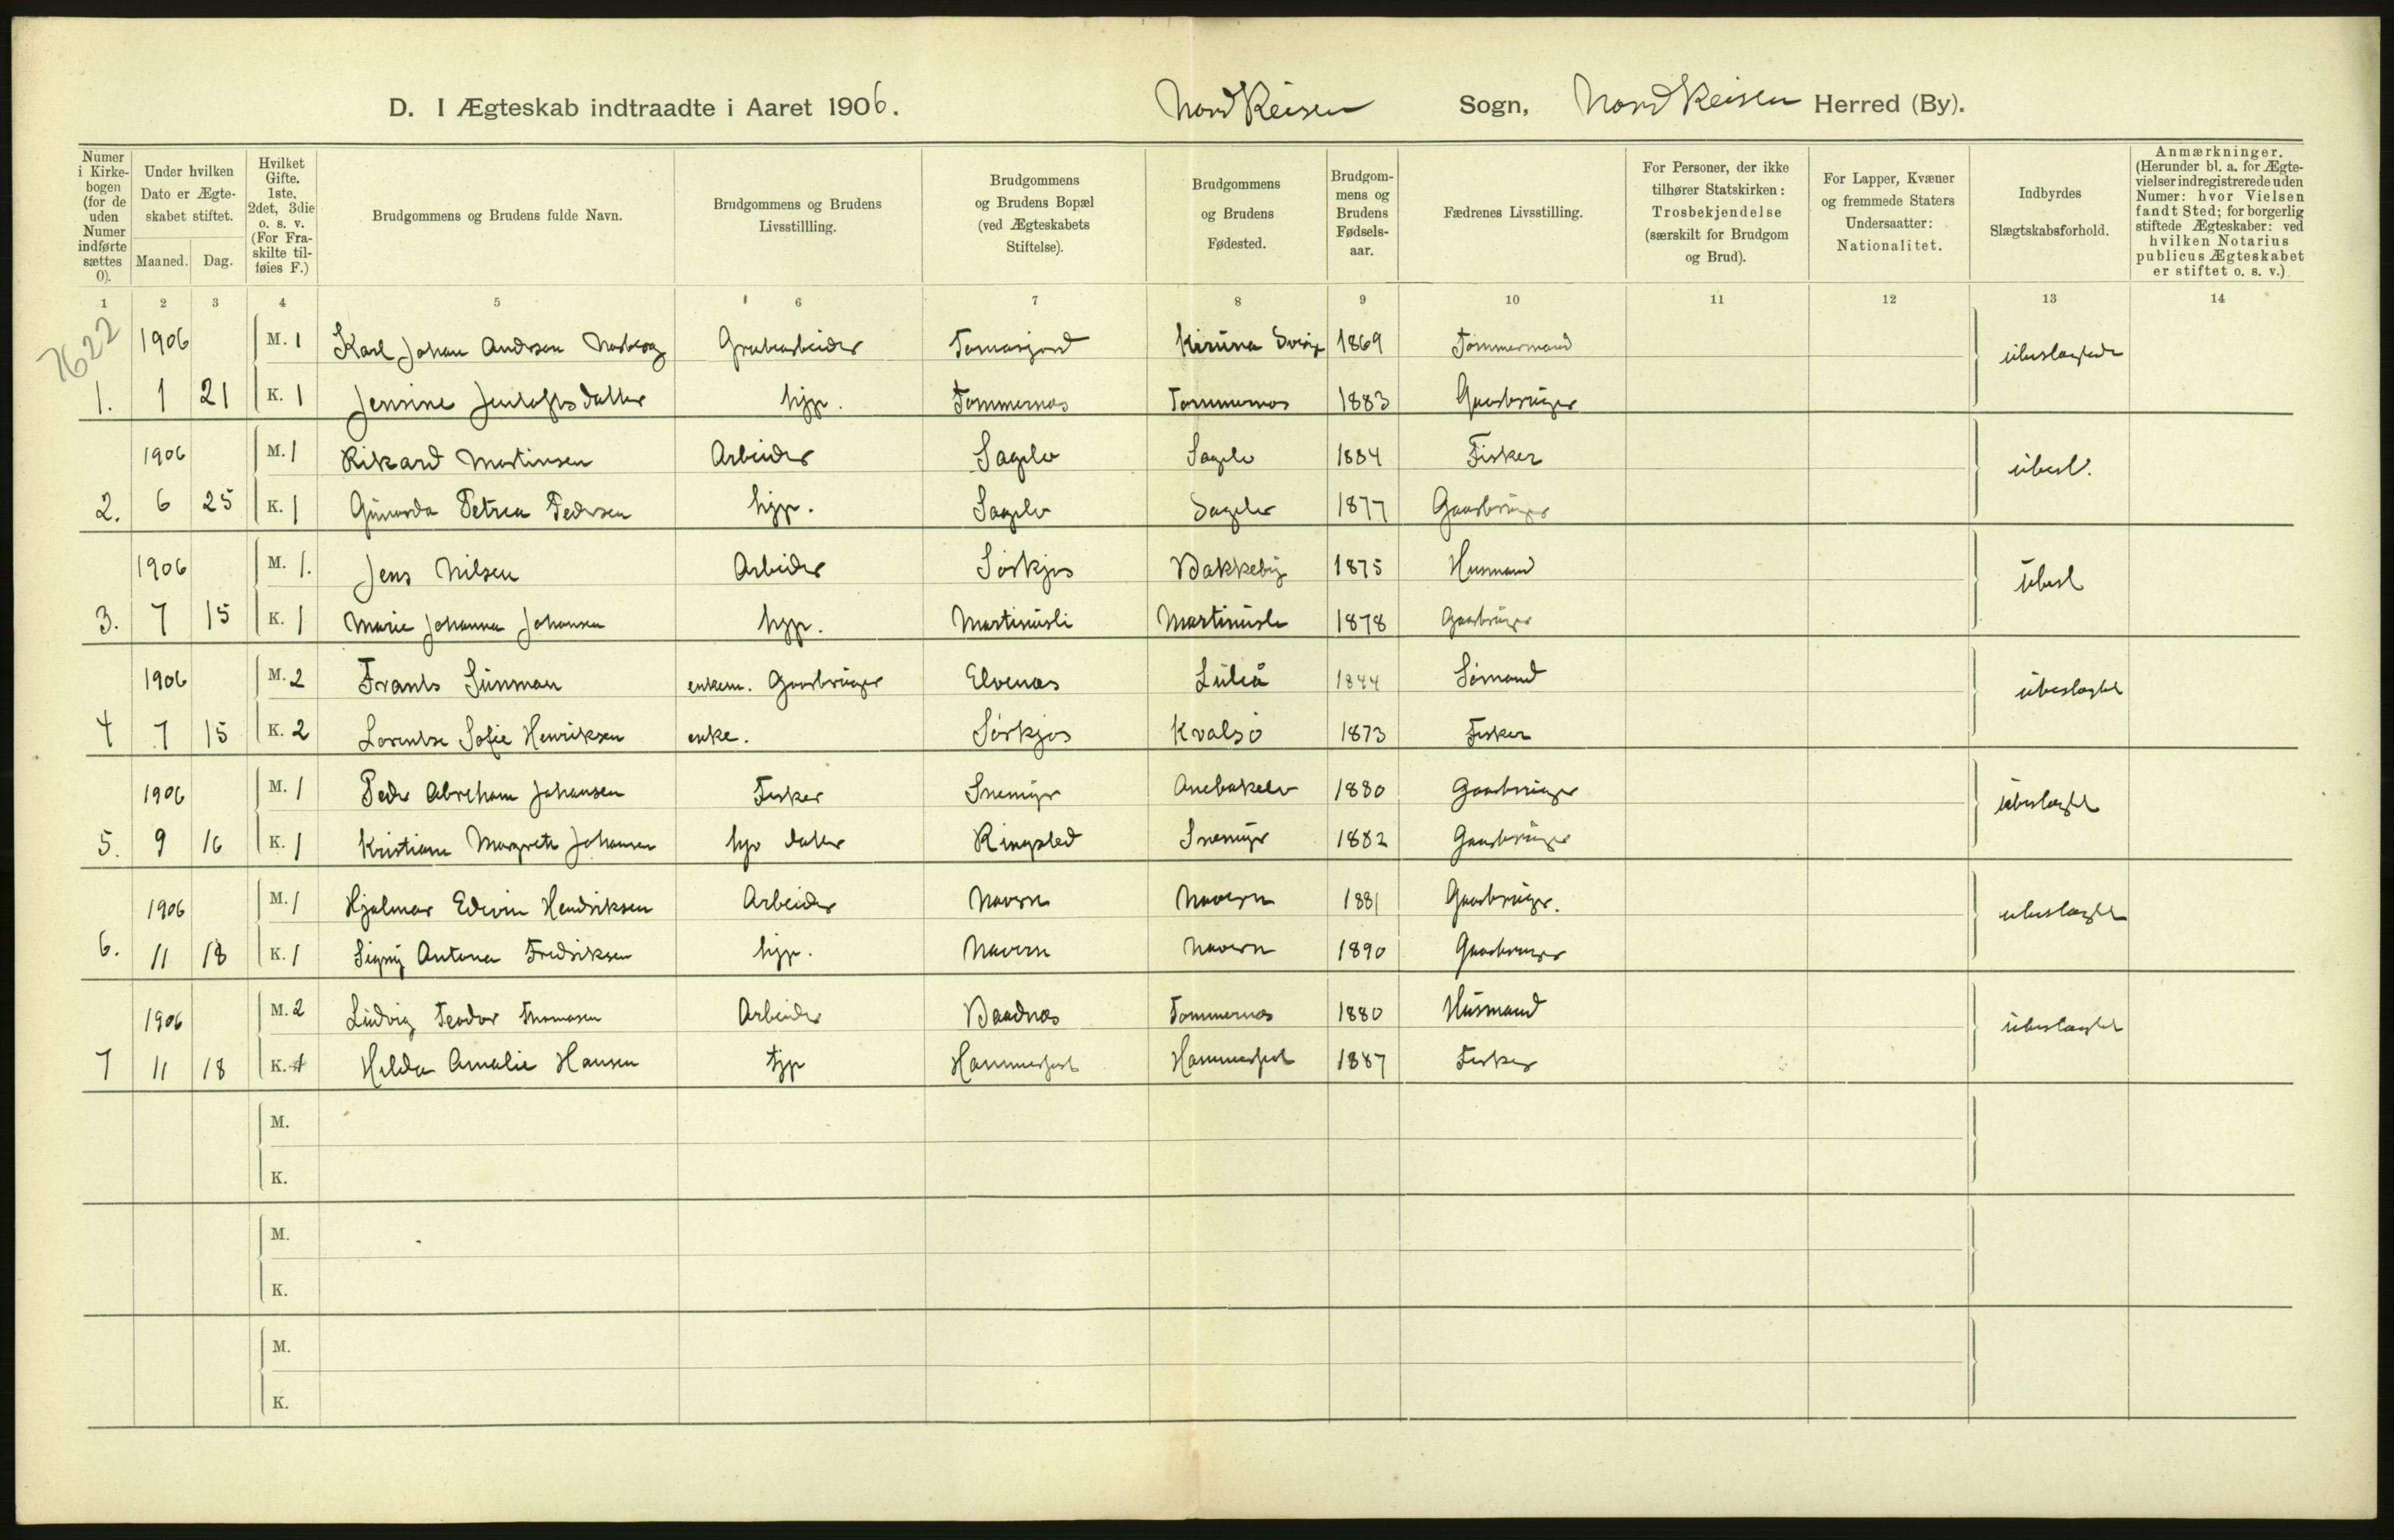 D. I Ægteskab indtraadte i Aaret 1906. Nord Reisen Sogn, Nord Reisen Herred (By).
Numer i Kirkebogen (for de uden Numer indførte sættes 0). Under hvilken Dato er Ægteskabet stiftet. Maaned. Dag. Hvilket Gifte. 1ste, 2det, 3die o. s. v. (For Fraskilte tilføies F.) Brudgommens og Brudens fulde Navn. Brudgommens og Brudens Livsstillling. Brudgommens og Brudens Bopæl (ved Ægteskabets Stiftelse). Brudgommens og Brudens Fødested. Brudgommens og Brudens Fødselsaar. Fædrenes Livsstilling. For Personer, der ikke tilhører Statskirken: Trosbekjendelse (særskilt for Brudgom og Brud). For Lapper, Kvæner og fremmede Staters Undersaatter: Nationalitet. Indbyrdes Slægtskabsforhold. Anmærkninger. (Herunder bl. a. for Ægtevielser indregistrerede uden Numer: hvor Vielsen fandt Sted; for borgerlig stiftede Ægteskaber: ved hvilken Notarius publicus Ægteskabet er stiftet o. s. v.)
1 2 3 4 5 6 7 8 9 10 11 12 13 14
7622
1906 M. 1 Karl Johan Andrsen Norberg Grubearbeider Tomasjord Kiruna Sverig 1869 Tømmermand ubeslægtede
1. 1 21 K. 1 Jensine datter hjp. Tømmernæs Tømmernæs 1883 Gaardbruger
1906 M. 1 Rikard Martinsen Arbeider Sagelv Sagelv 1884 Fisker ubesl.
2. 6 25 K. 1 Petrea Pedersen hjp. Sagelv Sagelv 1877 Gaardbruger
1906 M. 1. Jens Nilsen Arbeider Sørkjos Bakkeby 1875 Husmand ubesl
3. 7 15 K. 1 Marie Johanna Johansen hjp. Martinusli Martinusli 1878 Gaardbruger
1906 M. 2 Frants Sunman enkem. Gaardbruger Elvenæs Luleå 1844 Sømand ubeslægtet
4 7 15 K. 2 Lorentse Sofie Henriksen enke. Sørkjos Kvalsö 1873 Fisker
1906 M. 1 Peder Abraham Johansen Fisker Snemyr Anebakelv 1880 Gaardbruger ubeslægtet
5. 9 16 K. 1 Kristiane Margrete Johansen hjv datter Ringsted Snemyr 1882 Gaardbruger
1906 M. 1 Hjalmar Edvin Hendriksen Arbeider Navern Navern 1881 Gaardbruger. ubeslægtet
6. 11 18 K. 1 Signy Antona Fredriksen hjp. Navern Navern 1890 Gaardbruger
1906 M. 2 Ludvig Teodor Thomasen Arbeider Baadnæs Tømmernæs 1880 Husmand ubeslægtet
7 11 18 K. 1 Hilda Amalie Hansen tjp Hammerfest Hammerfest 1887 Fisker
M.
K.
M.
K.
M.
K.